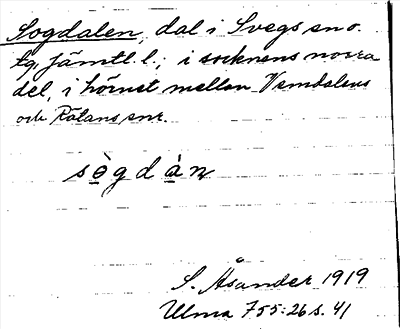 Sogdalen, dal i Svegs sn o.
tg, Jämtl. l.; i socknens norra
del, i hörnet mellan Vemdalens
och Rätans snr.
sògdàn
S. Åsander 1919
Ulma 755:26 s. 41